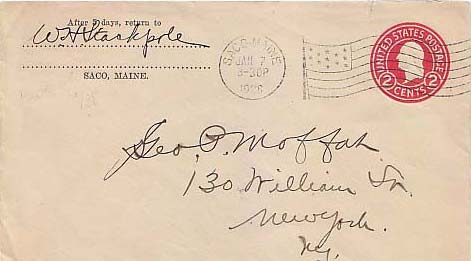 After 5 days, return to
W. H. Stackpole
SACO, MAINE.
SACO, MAINE
JAN 7
3-30P
1926
UNITED STATES POSTAGE
2 CENTS 2
Geo. P. Moffah
130 William St.
New York.
N.Y.